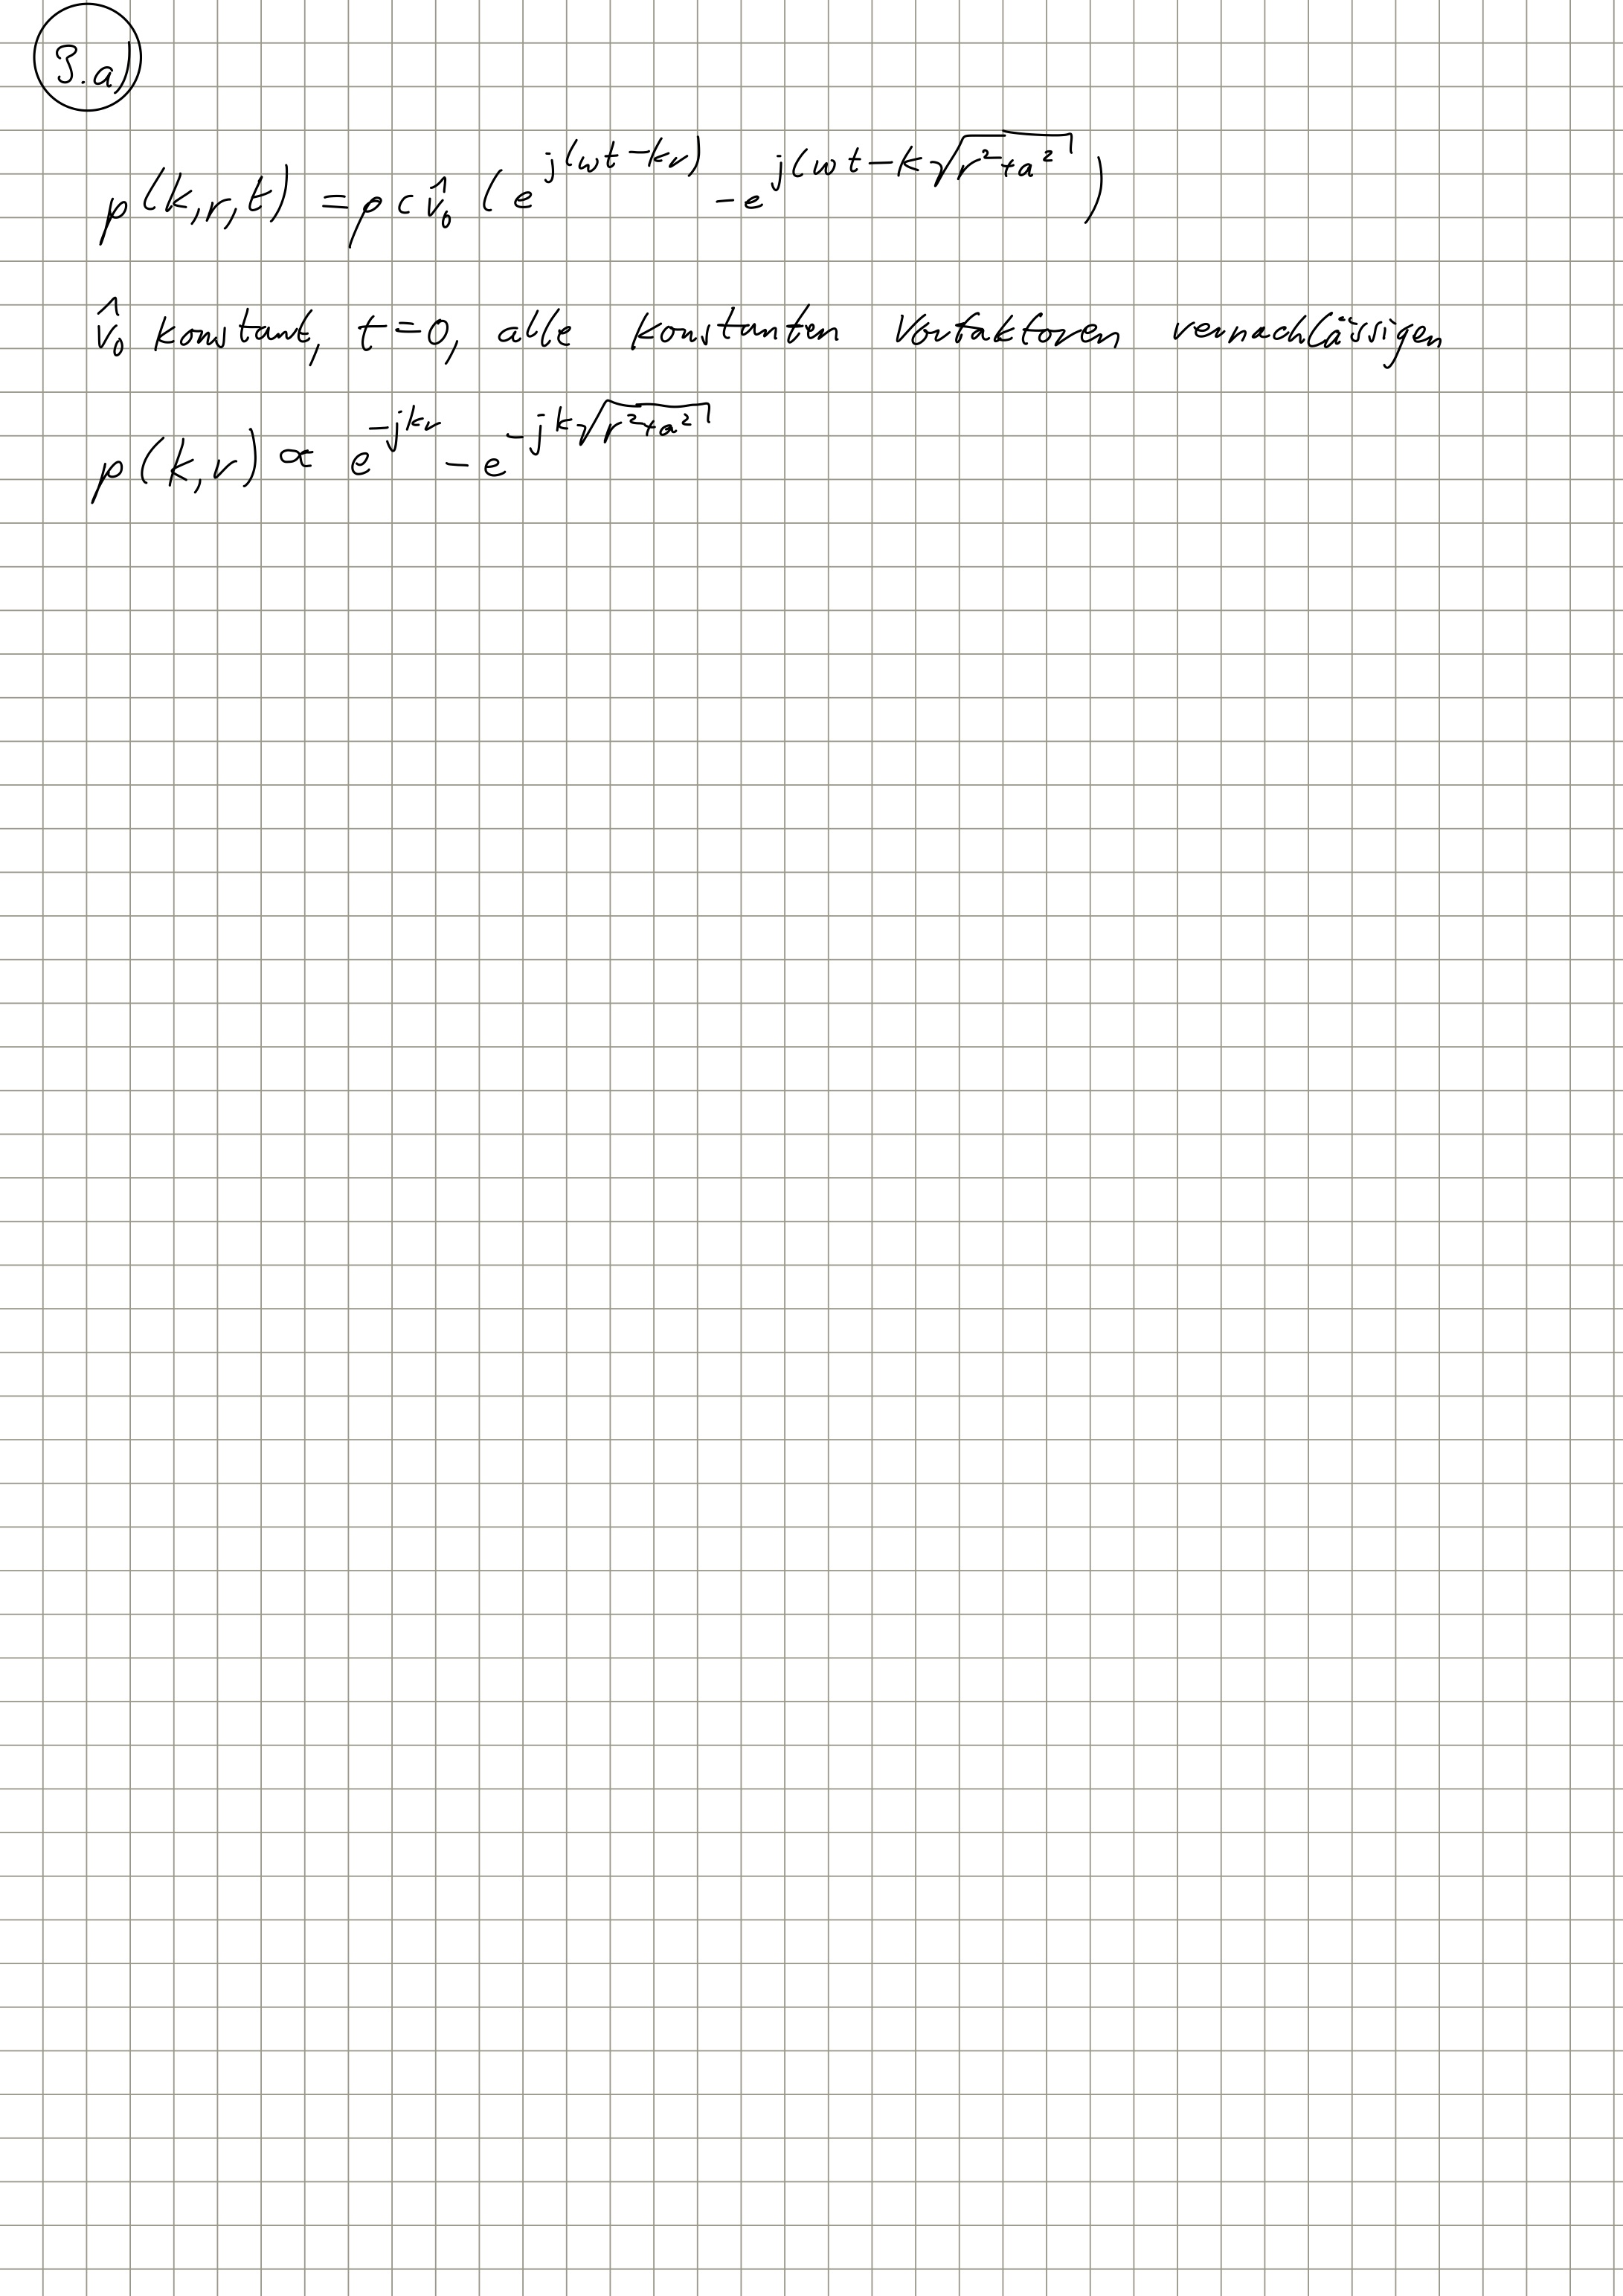 3.a)
p(k,r,t) = ρ c v̂₀ (e^{j(ωt-kr)} - e^{j(ωt-k√(r²+a²))})
v̂₀ konstant, t=0, alle konstanten Vorfaktoren vernachlässigen
p(k,r) ∝ e^{-jkr} - e^{-jk√(r²+a²)}